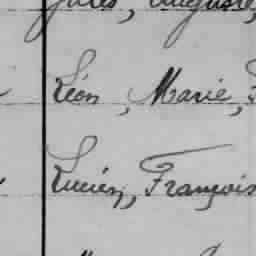 Jules, Auguste,
Léon, Marie,
Lucien, François